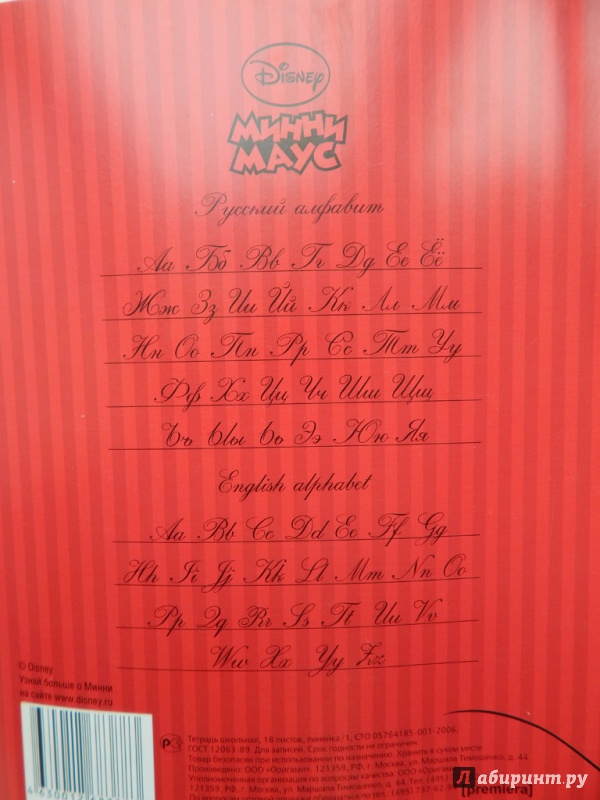 Disney
МИННИ
МАУС
Русский алфавит
Аа Бб Вв Гг Дд Ее Ёё
Жж Зз Ии Йй Кк Лл Мм
Нн Оо Пп Рр Сс Тт Уу
Фф Хх Цц Чч Шш Щщ
Ъъ Ыы Ьь Ээ Юю Яя
English alphabet
Aa Bb Cc Dd Ee Ff Gg
Hh Ii Jj Kk Ll Mm Nn Oo
Pp Qq Rr Ss Tt Uu Vv
Ww Xx Yy Zz
© Disney
Узнай больше о Минни
на сайте www.disney.ru
Тетрадь школьная, 18 листов, линейка/1, СТО 05764185-001-2006,
ГОСТ 12063-89. Для записей. Срок годности не ограничен.
Товар безопасен при использовании по назначению. Хранить в сухом месте
Произведено: ООО «Оригами», 121359, РФ, г. Москва, ул. Маршала Тимошенко, д. 44.
Уполномоченная организация по вопросам качества: ООО «Оригами»
121359, РФ, г. Москва, ул. Маршала Тимошенко, д. 44. Тел. (495)
[premiera]
Лабиринт.ру